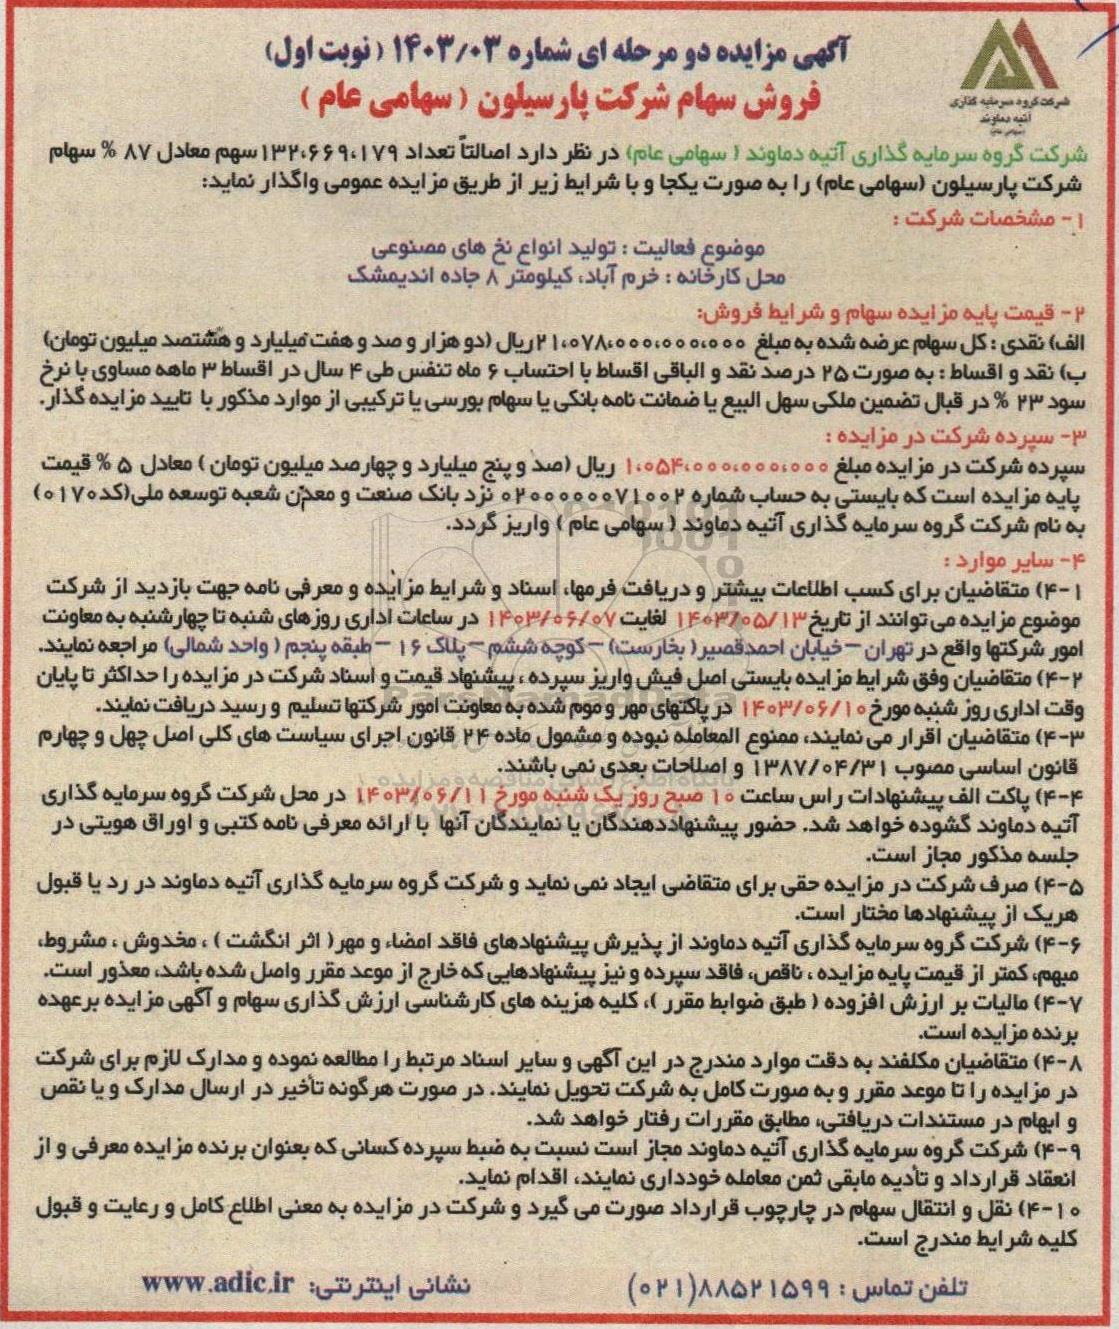 آگهی مزایده دو مرحله ای شماره ۱۴۰۳/۰۳ ( نوبت اول)
فروش سهام شرکت پارسیلون ( سهامی عام )
شرکت گروه سرمایه گذاری
آتیه دماوند
(سهامی عام)
شرکت گروه سرمایه گذاری آتیه دماوند ( سهامی عام) در نظر دارد اصالتاً تعداد ۱۳۲،۶۶۹،۱۷۹سهم معادل ۸۷ % سهام
شرکت پارسیلون (سهامی عام) را به صورت یکجا و با شرایط زیر از طریق مزایده عمومی واگذار نماید:
۱- مشخصات شرکت :
موضوع فعالیت : تولید انواع نخ های مصنوعی
محل کارخانه : خرم آباد، کیلومتر ۸ جاده اندیمشک
۲- قیمت پایه مزایده سهام و شرایط فروش:
الف) نقدی : کل سهام عرضه شده به مبلغ ۲۱،۰۷۸،۰۰۰،۰۰۰،۰۰۰ ریال (دو هزار و صد و هفت میلیارد و هشتصد میلیون تومان)
ب) نقد و اقساط : به صورت ۲۵ درصد نقد و الباقی اقساط با احتساب ۶ ماه تنفس طی ۴ سال در اقساط ۳ ماهه مساوی با نرخ
سود ۲۳ % در قبال تضمین ملکی سهل البیع یا ضمانت نامه بانکی یا سهام بورسی یا ترکیبی از موارد مذکور با تایید مزایده گذار.
۳- سپرده شرکت در مزایده :
سپرده شرکت در مزایده مبلغ ۱،۰۵۴،۰۰۰،۰۰۰،۰۰۰ ریال (صد و پنج میلیارد و چهارصد میلیون تومان ) معادل ۵ % قیمت
پایه مزایده است که بایستی به حساب شماره ۰۲۰۰۰۰۰۰۷۱۰۰۲ نزد بانک صنعت و معدن شعبه توسعه ملی(کد۰۱۷۰)
به نام شرکت گروه سرمایه گذاری آتیه دماوند ( سهامی عام ) واریز گردد.
۴- سایر موارد :
۴-۱) متقاضیان برای کسب اطلاعات بیشتر و دریافت فرمها، اسناد و شرایط مزایده و معرفی نامه جهت بازدید از شرکت
موضوع مزایده می توانند از تاریخ۱۴۰۳/۰۵/۱۳ لغایت ۱۴۰۳/۰۶/۰۷ در ساعات اداری روزهای شنبه تا چهارشنبه به معاونت
امور شرکتها واقع در تهران –خیابان احمدقصیر( بخارست) –کوچه ششم – پلاک ۱۶ – طبقه پنجم ( واحد شمالی) مراجعه نمایند.
۴-۲) متقاضیان وفق شرایط مزایده بایستی اصل فیش واریز سپرده ، پیشنهاد قیمت و اسناد شرکت در مزایده را حداکثر تا پایان
وقت اداری روز شنبه مورخ ۱۴۰۳/۰۶/۱۰ در پاکتهای مهر و موم شده به معاونت امور شرکتها تسلیم و رسید دریافت نمایند.
۴-۳) متقاضیان اقرار می نمایند، ممنوع المعامله نبوده و مشمول ماده ۲۴ قانون اجرای سیاست های کلی اصل چهل و چهارم
قانون اساسی مصوب ۱۳۸۷/۰۴/۳۱ و اصلاحات بعدی نمی باشند.
۴-۴) پاکت الف پیشنهادات راس ساعت ۱۰ صبح روز یک شنبه مورخ ۱۴۰۳/۰۶/۱۱ در محل شرکت گروه سرمایه گذاری
آتیه دماوند گشوده خواهد شد. حضور پیشنهاددهندگان یا نمایندگان آنها با ارائه معرفی نامه کتبی و اوراق هویتی در
جلسه مذکور مجاز است.
۴-۵) صرف شرکت در مزایده حقی برای متقاضی ایجاد نمی نماید و شرکت گروه سرمایه گذاری آتیه دماوند در رد یا قبول
هریک از پیشنهادها مختار است.
۴-۶) شرکت گروه سرمایه گذاری آتیه دماوند از پذیرش پیشنهادهای فاقد امضاء و مهر( اثر انگشت ) ، مخدوش ، مشروط،
مبهم، کمتر از قیمت پایه مزایده ، ناقص، فاقد سپرده و نیز پیشنهادهایی که خارج از موعد مقرر واصل شده باشد، معذور است.
۴-۷) مالیات بر ارزش افزوده ( طبق ضوابط مقرر )، کلیه هزینه های کارشناسی ارزش گذاری سهام و آگهی مزایده برعهده
برنده مزایده است.
۴-۸) متقاضیان مکلفند به دقت موارد مندرج در این آگهی و سایر اسناد مرتبط را مطالعه نموده و مدارک لازم برای شرکت
در مزایده را تا موعد مقرر و به صورت کامل به شرکت تحویل نمایند. در صورت هرگونه تأخیر در ارسال مدارک و یا نقص
و ابهام در مستندات دریافتی، مطابق مقررات رفتار خواهد شد.
۴-۹) شرکت گروه سرمایه گذاری آتیه دماوند مجاز است نسبت به ضبط سپرده کسانی که بعنوان برنده مزایده معرفی و از
انعقاد قرارداد و تأدیه مابقی ثمن معامله خودداری نمایند، اقدام نماید.
۴-۱۰) نقل و انتقال سهام در چارچوب قرارداد صورت می گیرد و شرکت در مزایده به معنی اطلاع کامل و رعایت و قبول
کلیه شرایط مندرج است.
تلفن تماس : ۸۸۵۲۱۵۹۹(۰۲۱) نشانی اینترنتی: www.adic.ir